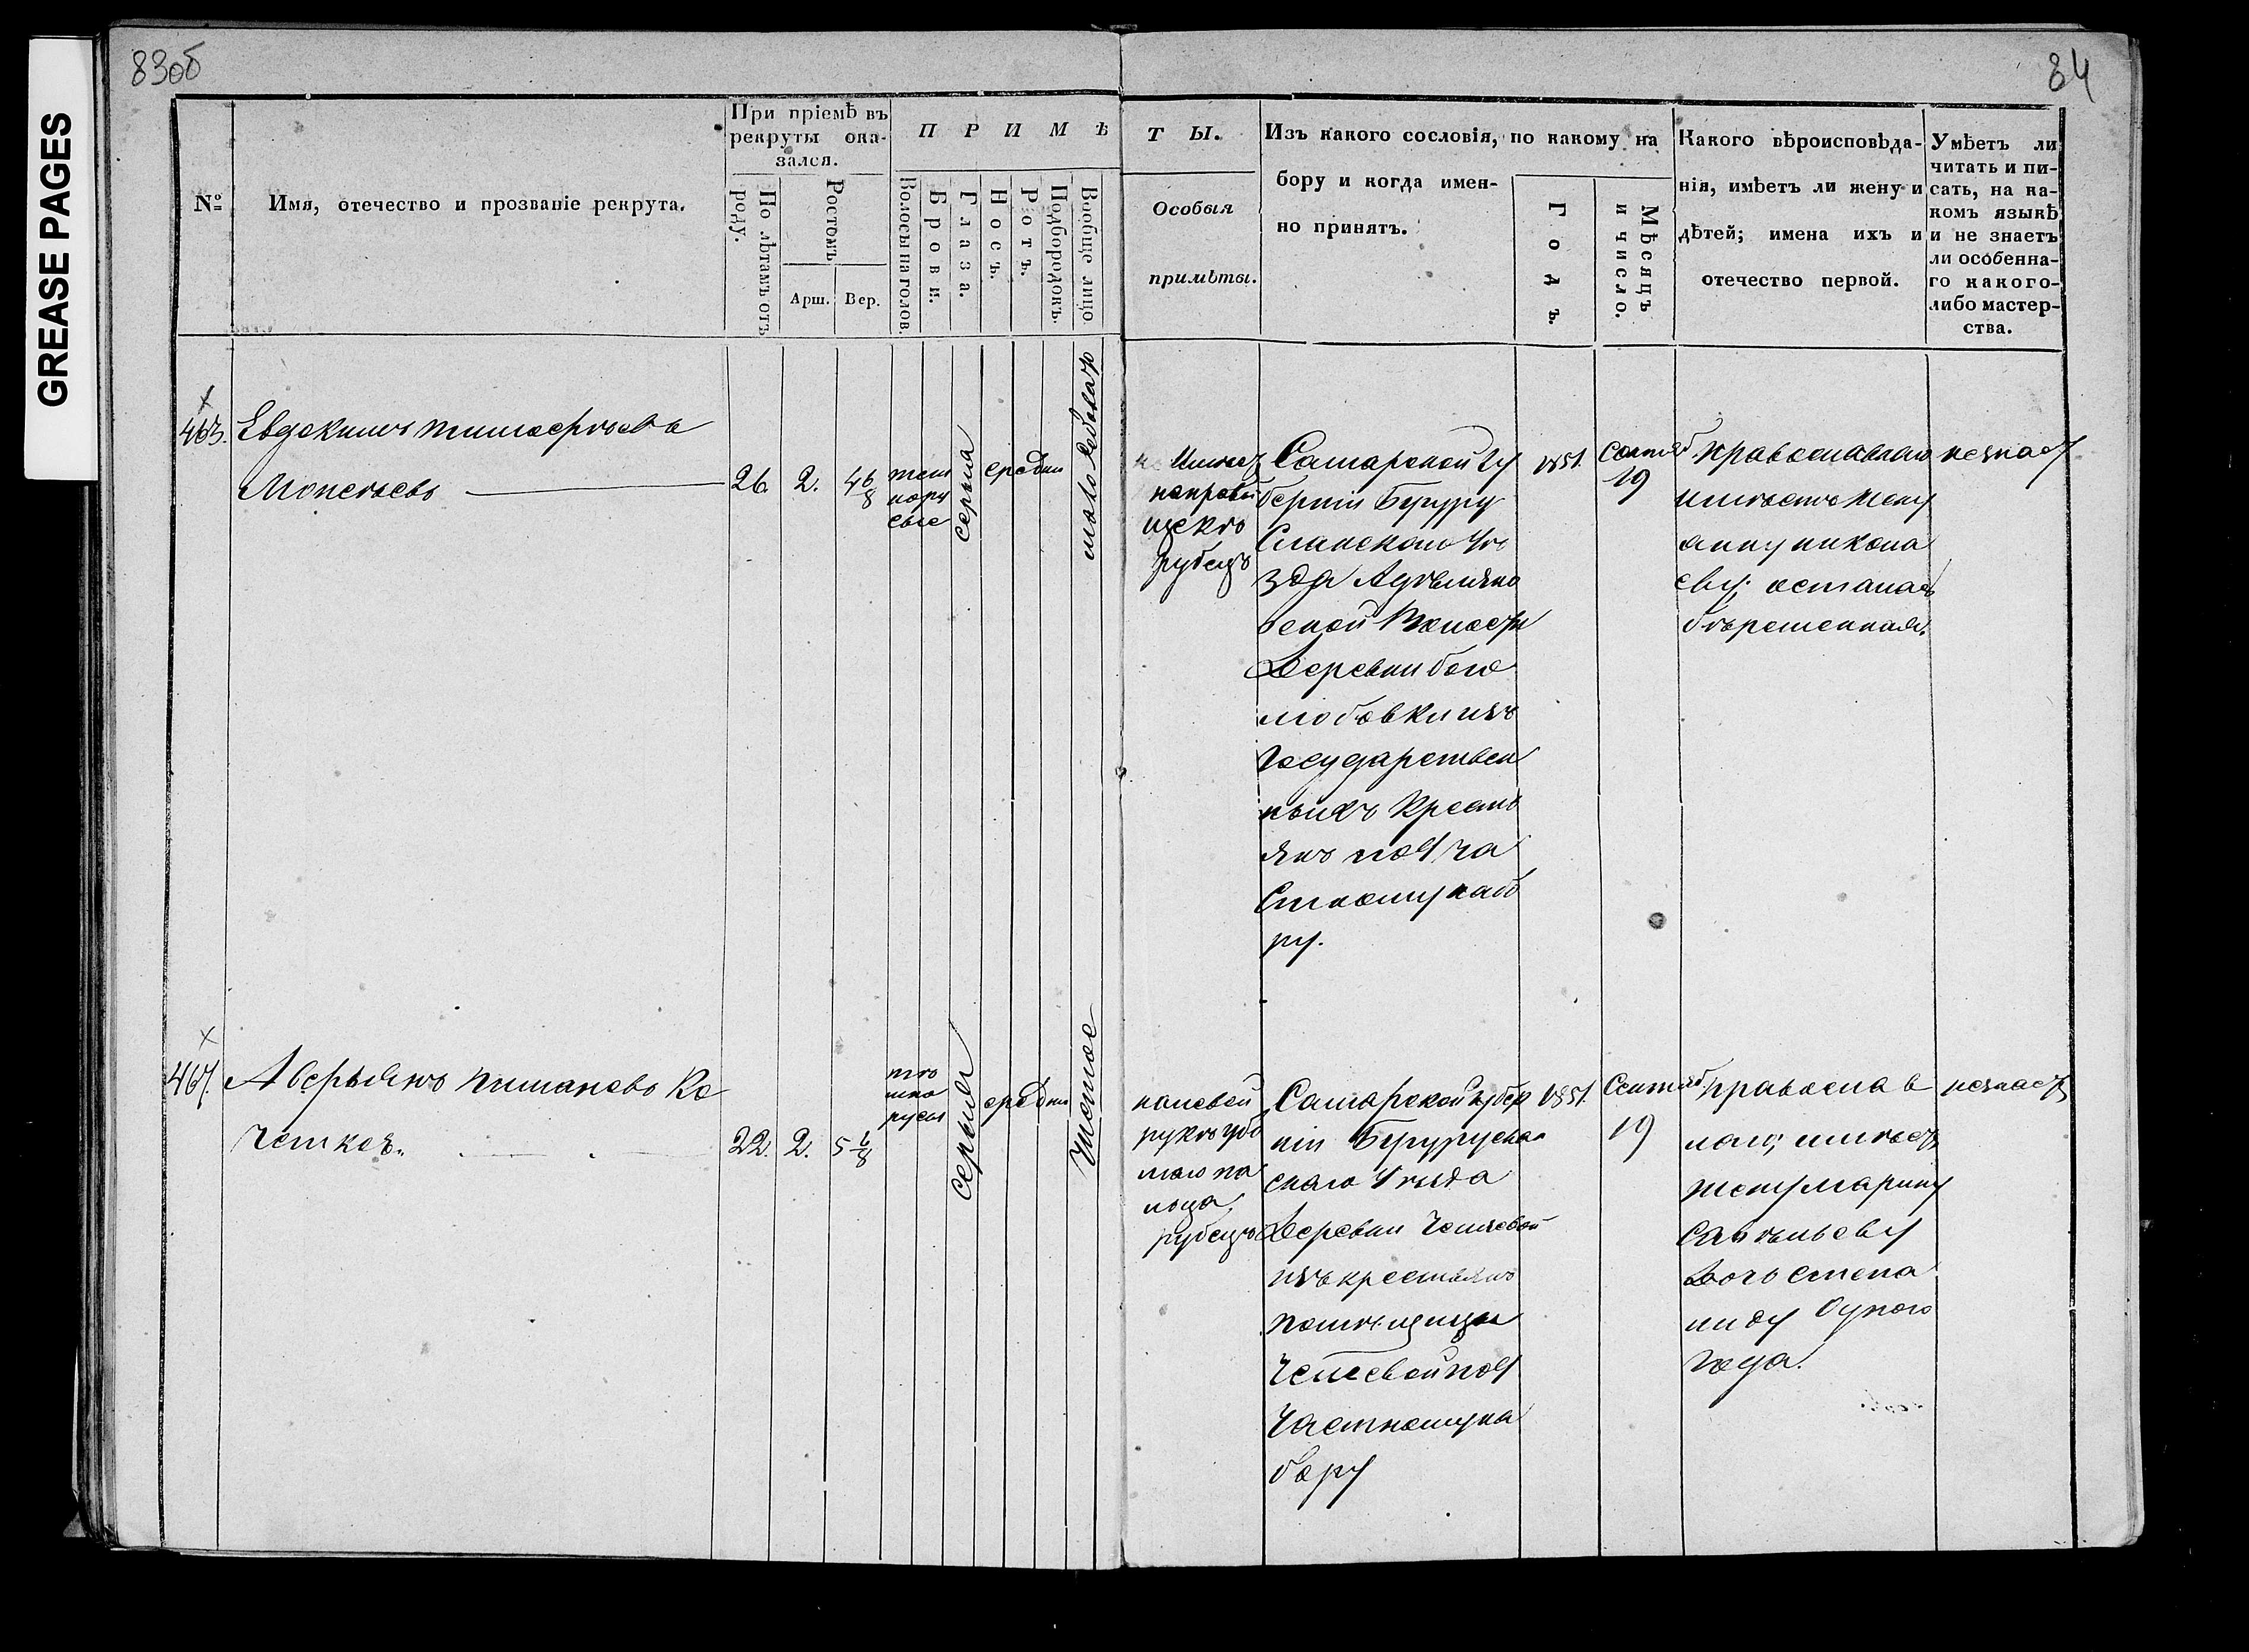 GREASE PAGES
83об
84
№
Имя, отечество и прозваніе рекрута.
При пріемѣ въ
рекруты ока-
зался.
По лѣтамъ отъ
роду.
Ростомъ
Арш.
Вер.
ПРИМѢ
Волосы на голов.
Брови.
Глаза.
Носъ.
Ротъ.
Подбородокъ.
Вообще лицо.
ТЫ.
Особыя
примѣты.
Изъ какого сословія, по какому на
бору и когда имен-
но принятъ.
Годъ.
Мѣсяцъ
и число.
Какого вѣроисповѣда-
нія, имѣетъ ли жену и
дѣтей; имена ихъ и
отечество первой.
Умѣетъ ли
читать и пи-
сать, на ка-
комъ языкѣ
и не знаетъ
ли особенна-
го какого-
либо мастер-
ства.
463.
Евдокимъ Тимоѳѣевъ
26.
2.
4 6/8
темно
русые
серыя
средни
на правой
щекѣ
рубецъ
Самарской гу
берніи Бугуру
сланскаго уѣ
зда
ской Волости
Деревни Бого
любовки изъ
государствен
ныхъ Кресть
янъ по 9 ча
стному набо
ру.
1851.
Сентяб.
19
православнаго
имѣетъ жену
Анну
еву; осталась
бѣременная.
незнаетъ
464.
Аверьянъ Ко
четковъ.
22.
2.
5
русыя
серыя
средни
чистое
на левой
рукѣ
рубецъ
Самарской губер
ніи Бугурусла
скаго Уѣзда
Деревни
изъ крестьянъ
помѣщицы
по 9
Частному на
бору
1851.
Сентяб.
19
православ
наго; имѣетъ
жену Марину
Савельеву
дочь Степа
ниду Одного
года.
незнаетъ